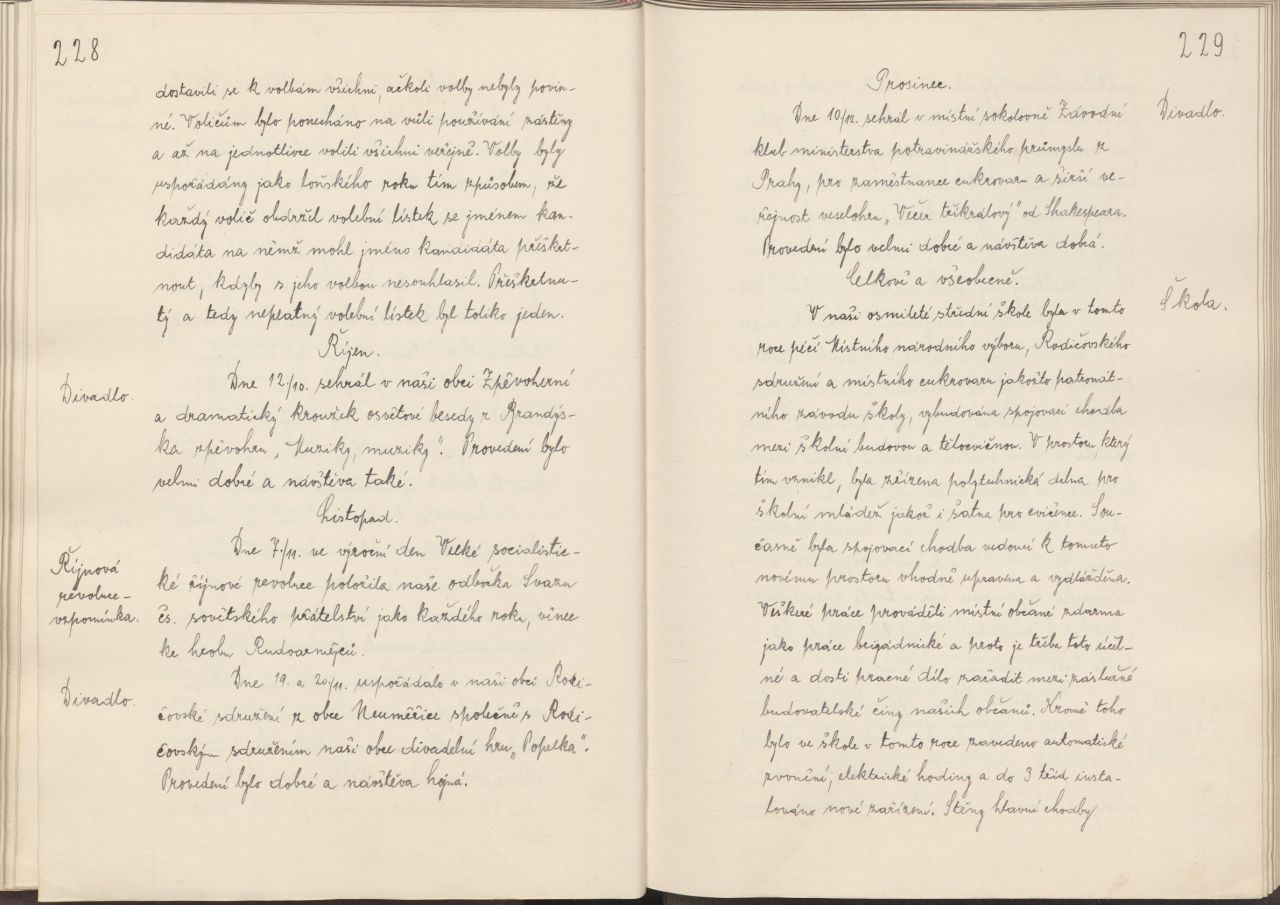 228
dostavili se k volbám všichni, ačkoli volby nebyly povin-
né. Voličům bylo ponecháno na vůli používání zástěny
a až na jednotlivce volili všichni veřejně. Volby byly
uspořádány jako loňského roku tím způsobem, že
každý volič obdržel volební lístek se jménem kan-
didáta na němž mohl jméno kandidáta přeškrt-
nout, kdyby s jeho volbou nesouhlasil. Přeškrtnu-
tý a tedy neplatný volební lístek byl toliko jeden.
Říjen.
Divadlo.
Dne 12./10. sehrál v naši obci Zpěvoherní
a dramatický kroužek osvětové besedy z Brandýs-
ka zpěvohru „Muziky, muziky". Provedení bylo
velmi dobré a návštěva také.
Listopad.
Říjnová
revoluce-
vzpomínka.
Dne 7./11. ve výroční den Velké socialistic-
ké říjnové revoluce položila naše odbočka Svazu
čs. sovětského přátelství jako každého roku, věnec
ke hrobu Rudoarmějců.
Divadlo.
Dne 19. a 20/11. uspořádalo v naši obci Rodi-
čovské sdružení z obce Neuměřice společně s Rodi-
čovským sdružením naši obce divadelní hru „Popelka".
Provedení bylo dobré a návštěva hojná.
229
Prosinec.
Divadlo.
Dne 10/12. sehrál v místní sokolovně Závodní
klub ministerstva potravinářského průmyslu z
Prahy, pro zaměstnance cukrovaru a širší ve-
řejnost veselohru „Večer tříkrálový" od Shakespeara.
Provedení bylo velmi dobré a návštěva dobrá.
Celkově a všeobecně.
Škola.
V naši osmileté střední škole byla v tomto
roce péčí Místního národního výboru, Rodičovského
sdružení a místního cukrovaru jakožto patronát-
ního závodu školy, vybudována spojovací chodba
mezi školní budovou a tělocvičnou. V prostoru, který
tím vznikl, byla zřízena polytechnická dílna pro
školní mládež jakož i šatna pro cvičence. Sou-
časně byla spojovací chodba vedoucí k tomuto
novému prostoru vhodně upravena a vydlážděna.
Veškeré práce prováděli místní občané zdarma
jako práce brigádnické a proto je třeba toto účel-
né a dosti pracné dílo zařadit mezi záslužné
budovatelské činy našich občanů. Kromě toho
bylo ve škole v tomto roce zavedeno automatické
zvonění, elektrické hodiny a do 3 tříd insta-
lováno nové zařízení. Stěny hlavní chodby